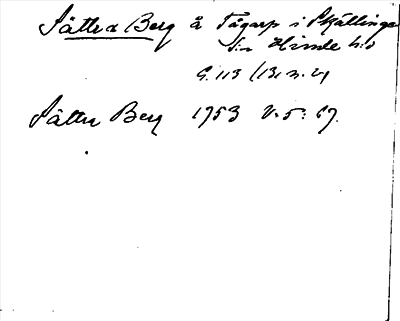 Sättra Berg å Tågarp i Skällinge
sn Himle hd
G. 113 (131 n. 4)
Sättra Berg 1753 V. 5: 69.